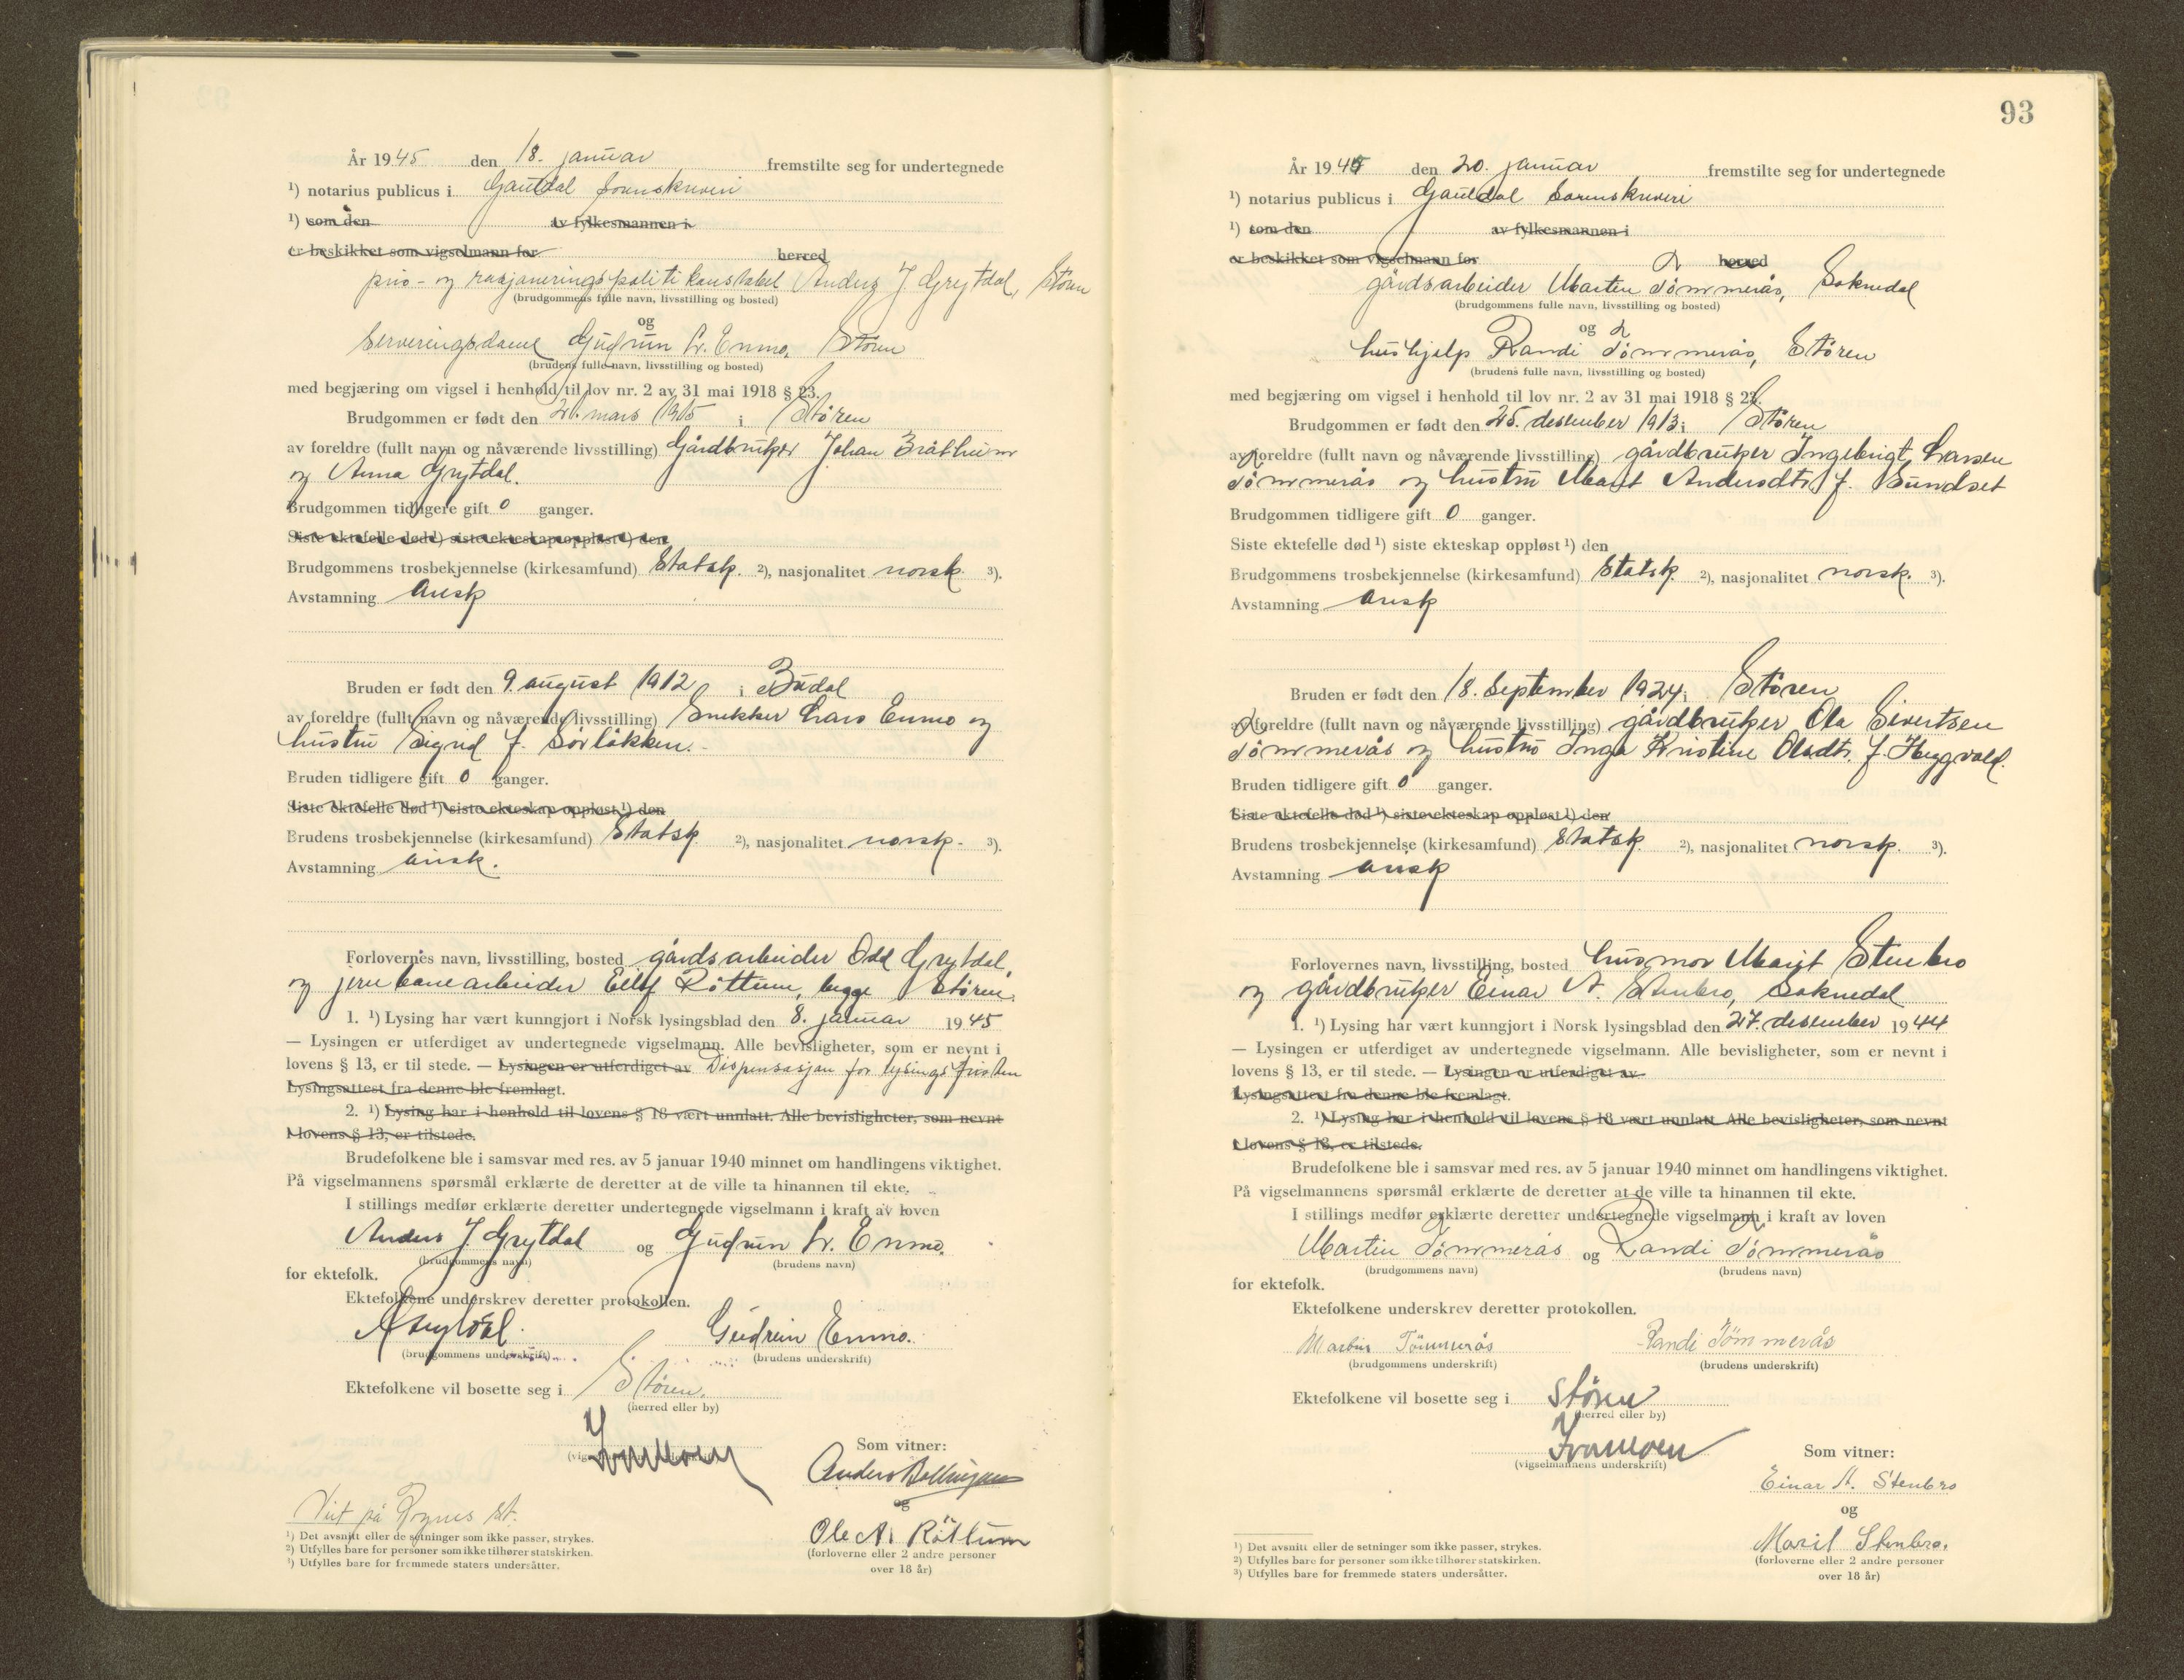 År 1945 den 18. januar fremstilte seg for undertegnede
¹) notarius publicus i Gauldal sorenskriveri
¹) som den av fylkesmannen i
er beskikket som vigselmann for herred
pris- og rasjoneringspolitikonstabel Anders J Grytdal, Støren
(brudgommens fulle navn, livsstilling og bosted)
og
Serveringsdame Gudrun L. Enmo, Støren
(brudens fulle navn, livsstilling og bosted)
med begjæring om vigsel i henhold til lov nr. 2 av 31 mai 1918 § 23.
Brudgommen er født den mars 1915 i Støren
av foreldre (fullt navn og nåværende livsstilling) Gårdbruker Johan Bråthum
og Anna Grytdal.
Brudgommen tidligere gift 0 ganger.
Siste ektefelle død¹) siste ekteskap oppløst¹) den
Brudgommens trosbekjennelse (kirkesamfund) Statsk. ²), nasjonalitet norsk ³).
Avstamning arisk
Bruden er født den 9. august 1912 i Budal
av foreldre (fullt navn og nåværende livsstilling) Snekker Lars Enmo og
hustru Sigrid f. Sørløkken.
Bruden tidligere gift 0 ganger.
Siste ektefelle død ¹) siste ekteskap oppløst ¹) den
Brudens trosbekjennelse (kirkesamfund) Statsk. ²), nasjonalitet norsk. ³).
Avstamning arisk.
Forlovernes navn, livsstilling, bosted gårdsarbeider Odd Grytdal,
og jernbanearbeider Eilif Røttum, begge Støren.
1. ¹) Lysing har vært kunngjort i Norsk lysingsblad den 8. januar 1945
— Lysingen er utferdiget av undertegnede vigselmann. Alle bevisligheter, som er nevnt i
lovens § 13, er til stede. — Lysingen er utferdiget av Dispensasjon for lysingsfristen
Lysingsattest fra denne ble fremlagt.
2. ¹) Lysing har i henhold til lovens § 18 vært unnlatt. Alle bevisligheter, som nevnt
i lovens § 13, er tilstede.
Brudefolkene ble i samsvar med res. av 5 januar 1940 minnet om handlingens viktighet.
På vigselmannens spørsmål erklærte de deretter at de ville ta hinannen til ekte.
I stillings medfør erklærte deretter undertegnede vigselmann i kraft av loven
Anders J. Grytdal og Gudrun L. Enmo.
(brudgommens navn) (brudens navn)
for ektefolk.
Ektefolkene underskrev deretter protokollen.
A Grytdal. Gudrun Enmo.
(brudgommens underskrift) (brudens underskrift)
Ektefolkene vil bosette seg i Støren.
(herred eller by)
(vigselmannens underskrift)
Som vitner:
Anders
og
Ole A. Røttum
(forloverne eller 2 andre personer
over 18 år)
Viet på Rognes st.
¹) Det avsnitt eller de setninger som ikke passer, strykes.
²) Utfylles bare for personer som ikke tilhører statskirken.
³) Utfylles bare for fremmede staters undersåtter.
93
År 1945 den 20. januar fremstilte seg for undertegnede
¹) notarius publicus i Gauldal Sorenskriveri
¹) som den av fylkesmannen i
er beskikket som vigselmann for herred
gårdsarbeider Martin Tømmerås, Soknedal
(brudgommens fulle navn, livsstilling og bosted)
og
hushjelp Randi Tømmerås, Støren
(brudens fulle navn, livsstilling og bosted)
med begjæring om vigsel i henhold til lov nr. 2 av 31 mai 1918 § 23.
Brudgommen er født den 25. desember 1913 i Støren
av foreldre (fullt navn og nåværende livsstilling) gårdbruker Ingebrigt Larsen
Tømmerås og hustru Marit Andersdtr f. Sundset
Brudgommen tidligere gift 0 ganger.
Siste ektefelle død ¹) siste ekteskap oppløst ¹) den
Brudgommens trosbekjennelse (kirkesamfund) Statsk. ²), nasjonalitet norsk. ³).
Avstamning arisk
Bruden er født den 18. September 1924 i Støren
av foreldre (fullt navn og nåværende livsstilling) gårdbruker Ola Sivertsen
Tømmerås og hustru Inga Kristine Olsdtr. f. Hygvold.
Bruden tidligere gift 0 ganger.
Siste ektefelle død ¹) siste ekteskap oppløst ¹) den
Brudens trosbekjennelse (kirkesamfund) Statsk. ²), nasjonalitet norsk. ³).
Avstamning arisk
Forlovernes navn, livsstilling, bosted husmor Marit Stenbro
og gårdbruker Einar A. Stenbro, Soknedal
1. ¹) Lysing har vært kunngjort i Norsk lysingsblad den 27. desember 1944
— Lysingen er utferdiget av undertegnede vigselmann. Alle bevisligheter, som er nevnt i
lovens § 13, er til stede. — Lysingen er utferdiget av
Lysingsattest fra denne ble fremlagt.
2. ¹) Lysing har i henhold til lovens § 18 vært unnlatt Alle bevisligheter, som nevnt
i lovens § 13, er tilstede.
Brudefolkene ble i samsvar med res. av 5 januar 1940 minnet om handlingens viktighet.
På vigselmannens spørsmål erklærte de deretter at de ville ta hinannen til ekte.
I stillings medfør erklærte deretter undertegnede vigselmann i kraft av loven
Martin Tømmerås og Randi Tømmerås
(brudgommens navn) (brudens navn)
for ektefolk.
Ektefolkene underskrev deretter protokollen.
Martin Tømmerås Randi Tømmerås
(brudgommens underskrift) (brudens underskrift)
Ektefolkene vil bosette seg i Støren
(herred eller by)
(vigselmannens underskrift)
Som vitner:
Einar A. Stenbro
og
Marit Stenbro.
(forloverne eller 2 andre personer
over 18 år)
¹) Det avsnitt eller de setninger som ikke passer, strykes.
²) Utfylles bare for personer som ikke tilhører statskirken.
³) Utfylles bare for fremmede staters undersåtter.